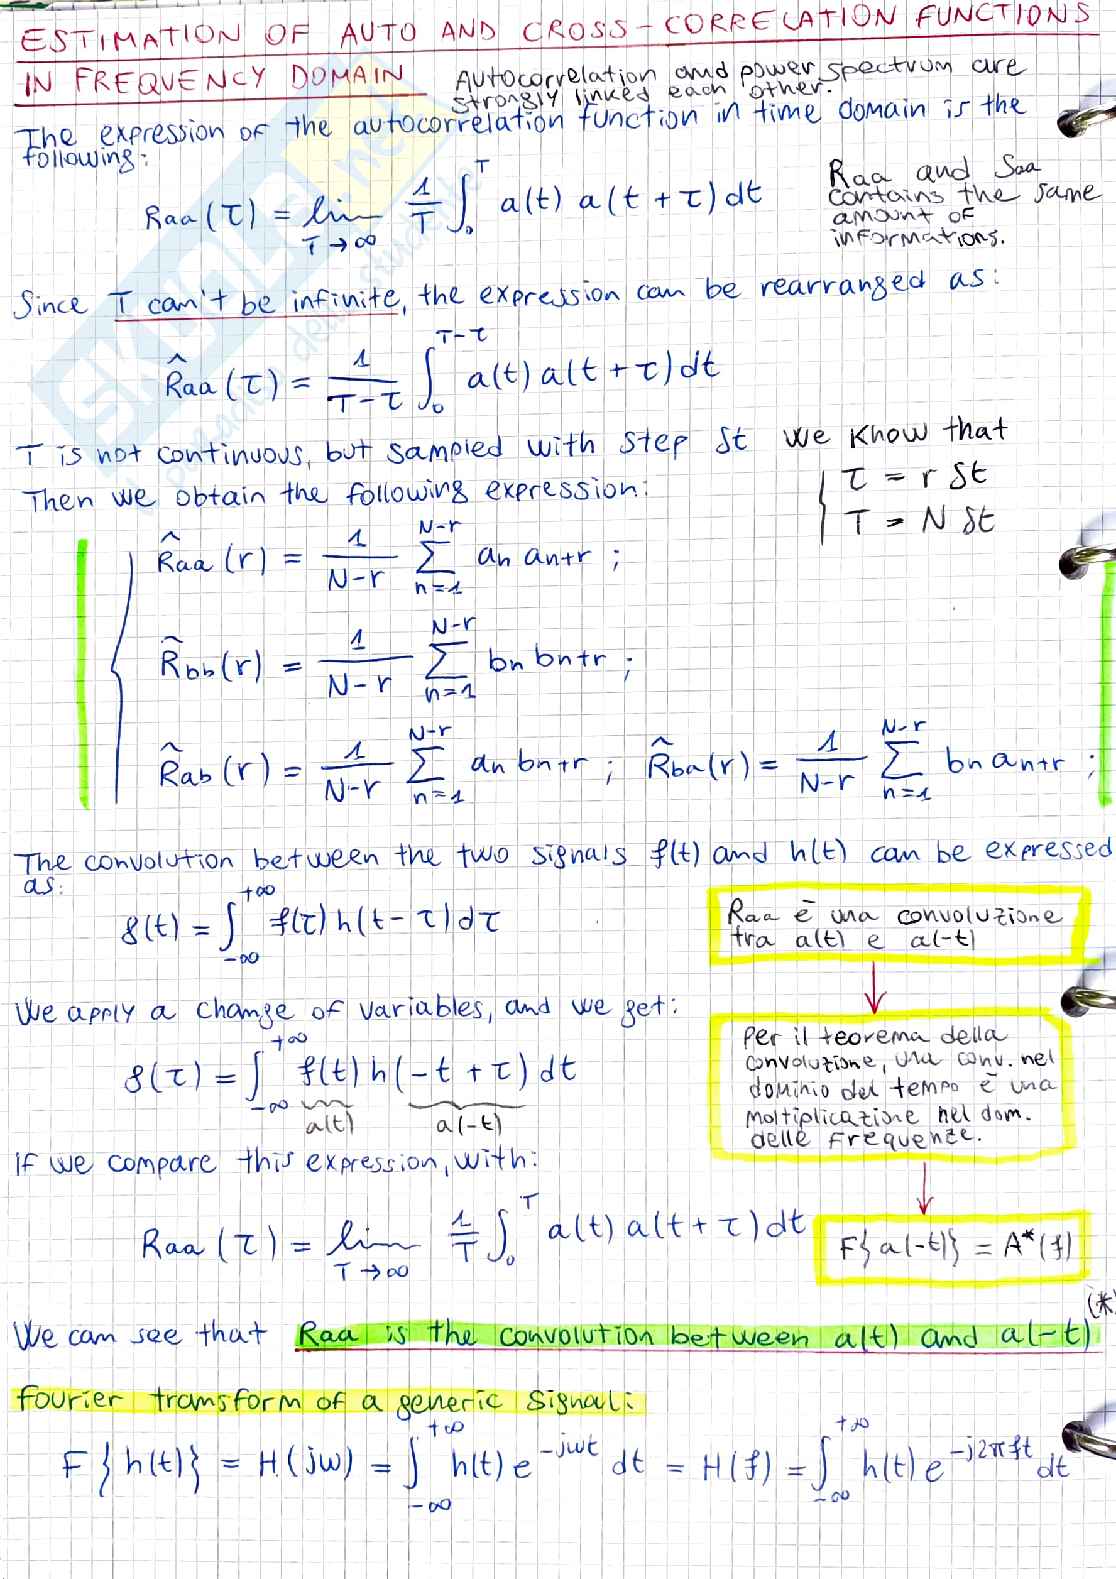 ESTIMATION OF AUTO AND CROSS-CORRELATION FUNCTIONS
IN FREQUENCY DOMAIN
Autocorrelation and power spectrum are
strongly linked each other.
The expression of the autocorrelation function in time domain is the
following:
Raa(τ) = lim T→∞ 1/T ∫₀ᵀ a(t) a(t+τ) dt
Raa and Saa
contains the same
amount of
informations.
Since T can't be infinite, the expression can be rearranged as:
R̂aa(τ) = 1/(T-τ) ∫₀^(T-τ) a(t) a(t+τ) dt
T is not continuous, but sampled with step δt
we know that
Then we obtain the following expression:
{ τ = r δt
T = N δt
R̂aa(r) = 1/(N-r) Σ_(n=1)^(N-r) an an+r ;
R̂bb(r) = 1/(N-r) Σ_(n=1)^(N-r) bn bn+r ;
R̂ab(r) = 1/(N-r) Σ_(n=1)^(N-r) an bn+r ; R̂ba(r) = 1/(N-r) Σ_(n=1)^(N-r) bn an+r ;
The convolution between the two signals f(t) and h(t) can be expressed
as:
g(t) = ∫_(-∞)^(+∞) f(τ) h(t-τ) dτ
Raa è una convoluzione
tra a(t) e a(-t)
We apply a change of variables, and we get:
g(τ) = ∫_(-∞)^(+∞) f(t) h(-t+τ) dt
a(t) a(-t)
Per il teorema della
convoluzione, una conv. nel
dominio del tempo è una
moltiplicazione nel dom.
delle frequenze.
If we compare this expression, with:
Raa(τ) = lim T→∞ 1/T ∫₀ᵀ a(t) a(t+τ) dt
F{a(-t)} = A*(f)
We can see that Raa is the convolution between a(t) and a(-t) (*)
Fourier transform of a generic signal:
F{h(t)} = H(jω) = ∫_(-∞)^(+∞) h(t) e^(-jωt) dt = H(f) = ∫_(-∞)^(+∞) h(t) e^(-j2πft) dt